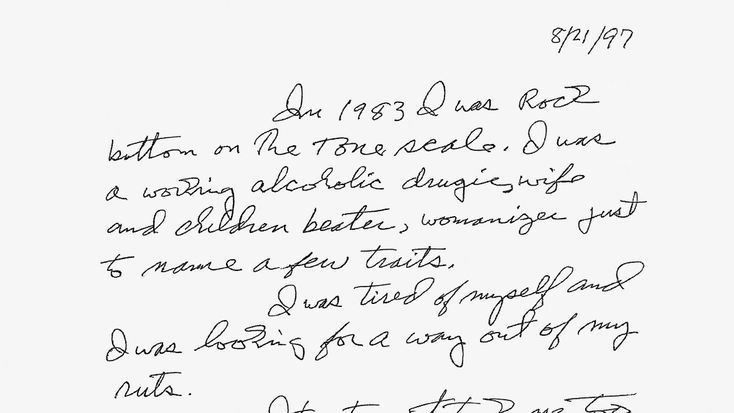 8/21/97
In 1983 I was Rock
bottom on the Tone scale. I was
a working alcoholic drugie, wife
and children beater, womanizer just
to name a few traits.
I was tired of myself and
I was looking for a way out of my
ruts.